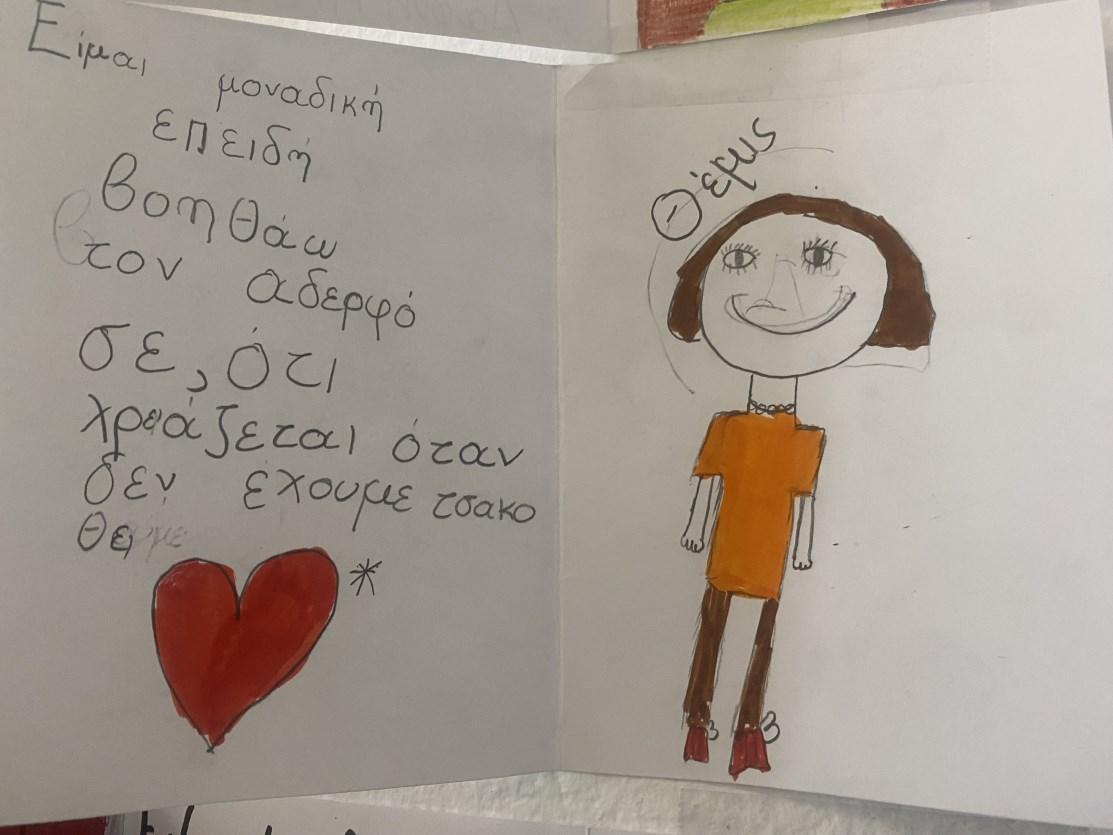 Είμαι
μοναδική
επειδή
βοηθάω
τον αδερφό
σε, ότι
χρειάζεται όταν
δεν έχουμε τσακο
θεί
*
Θέμις